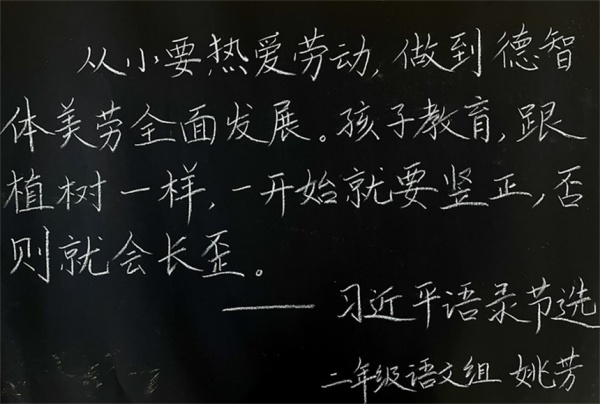 从小要热爱劳动,做到德智
体美劳全面发展。孩子教育,跟
植树一样,一开始就要竖正,否
则就会长歪。
——习近平语录节选
二年级语文组 姚芳